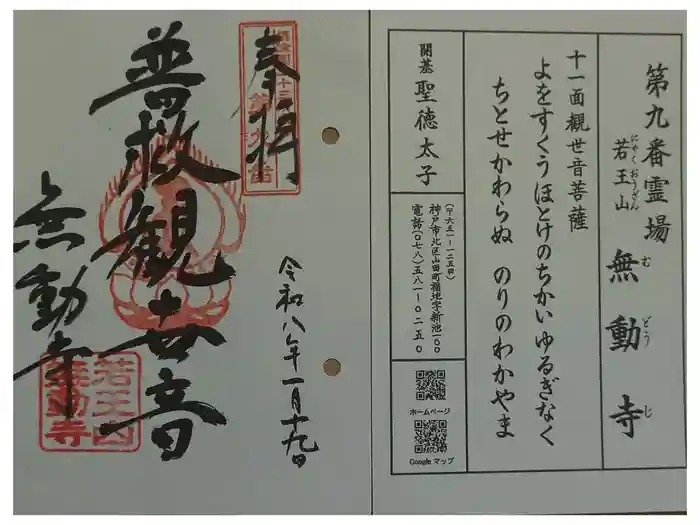 第九番霊場
にゃくおうざん
若王山
むどうじ
無動寺
十一面観世音菩薩
よをすくうほとけのちかいゆるぎなく
ちとせかわらぬ のりのわかやま
開基 聖徳太子
神戸市北区山田町福地字新池一〇〇
電話(〇七八)五八一-〇二五〇
ホームページ
Googleマップ
奉拝
令和八年一月十九日
普救観世音
無動寺
若王山
無動寺